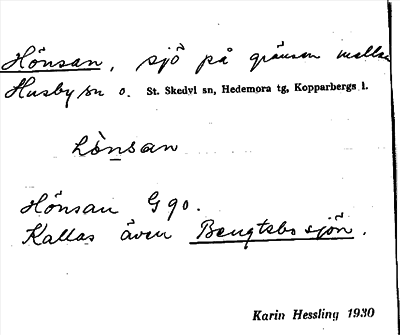 Hönsan, sjö på gränsen mellan
Husby sn o. St. Skedvi sn, Hedemora tg, Kopparbergs l.
hö̀nsan
Hönsan G 90.
Kallas även Bengtsbo sjön.
Karin Hessling 1930